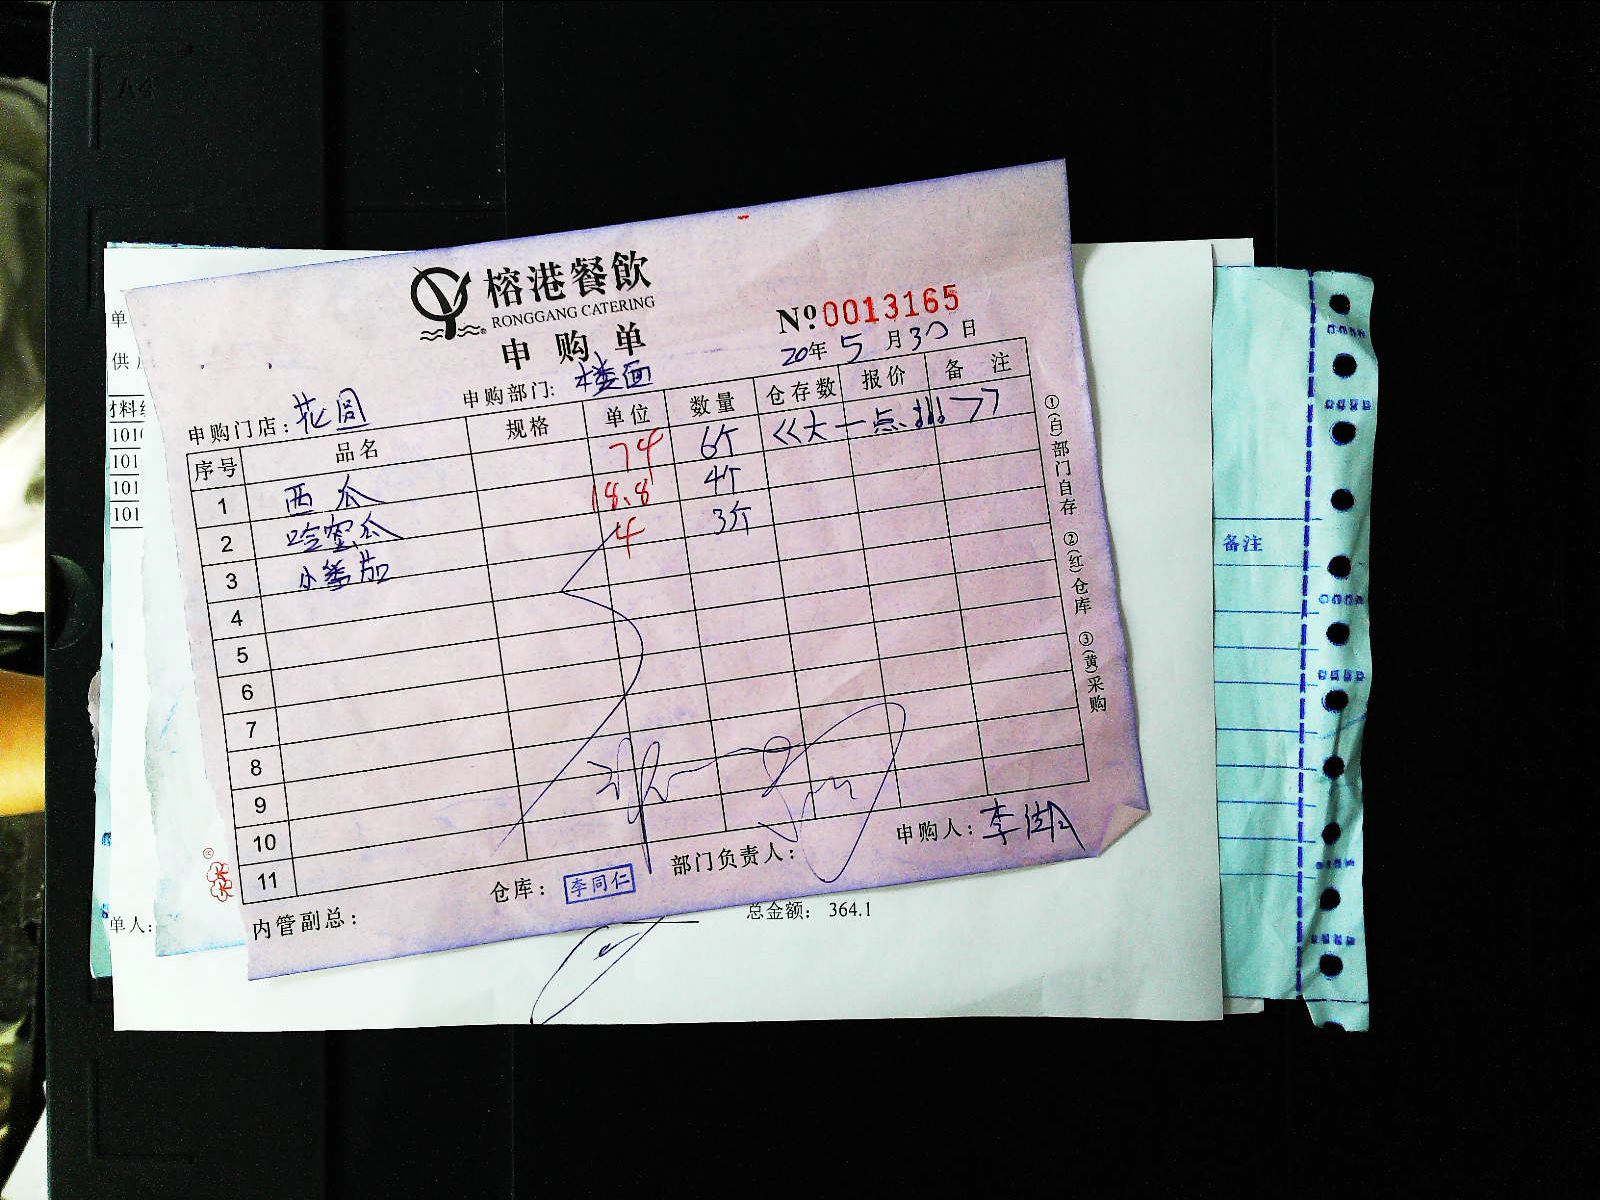 榕港餐飲
RONGGANG CATERING
申购单
№0013165
20年5月30日
申购门店:花园
申购部门:楼面
序号 品名 规格 单位 数量 仓存数 报价 备注
1 西瓜 74 6个 <<大一点!!!>>
2 哈蜜瓜 18.8 4个
3 小番茄 4 3斤
4
5
6
7
8
9
10
11
①(白)部门自存 ②(红)仓库 ③(黄)采购
内管副总:
仓库: 李同仁
部门负责人:
申购人:李
单
供
材料
101
101
101
101
单人:
总金额: 364.1
备注